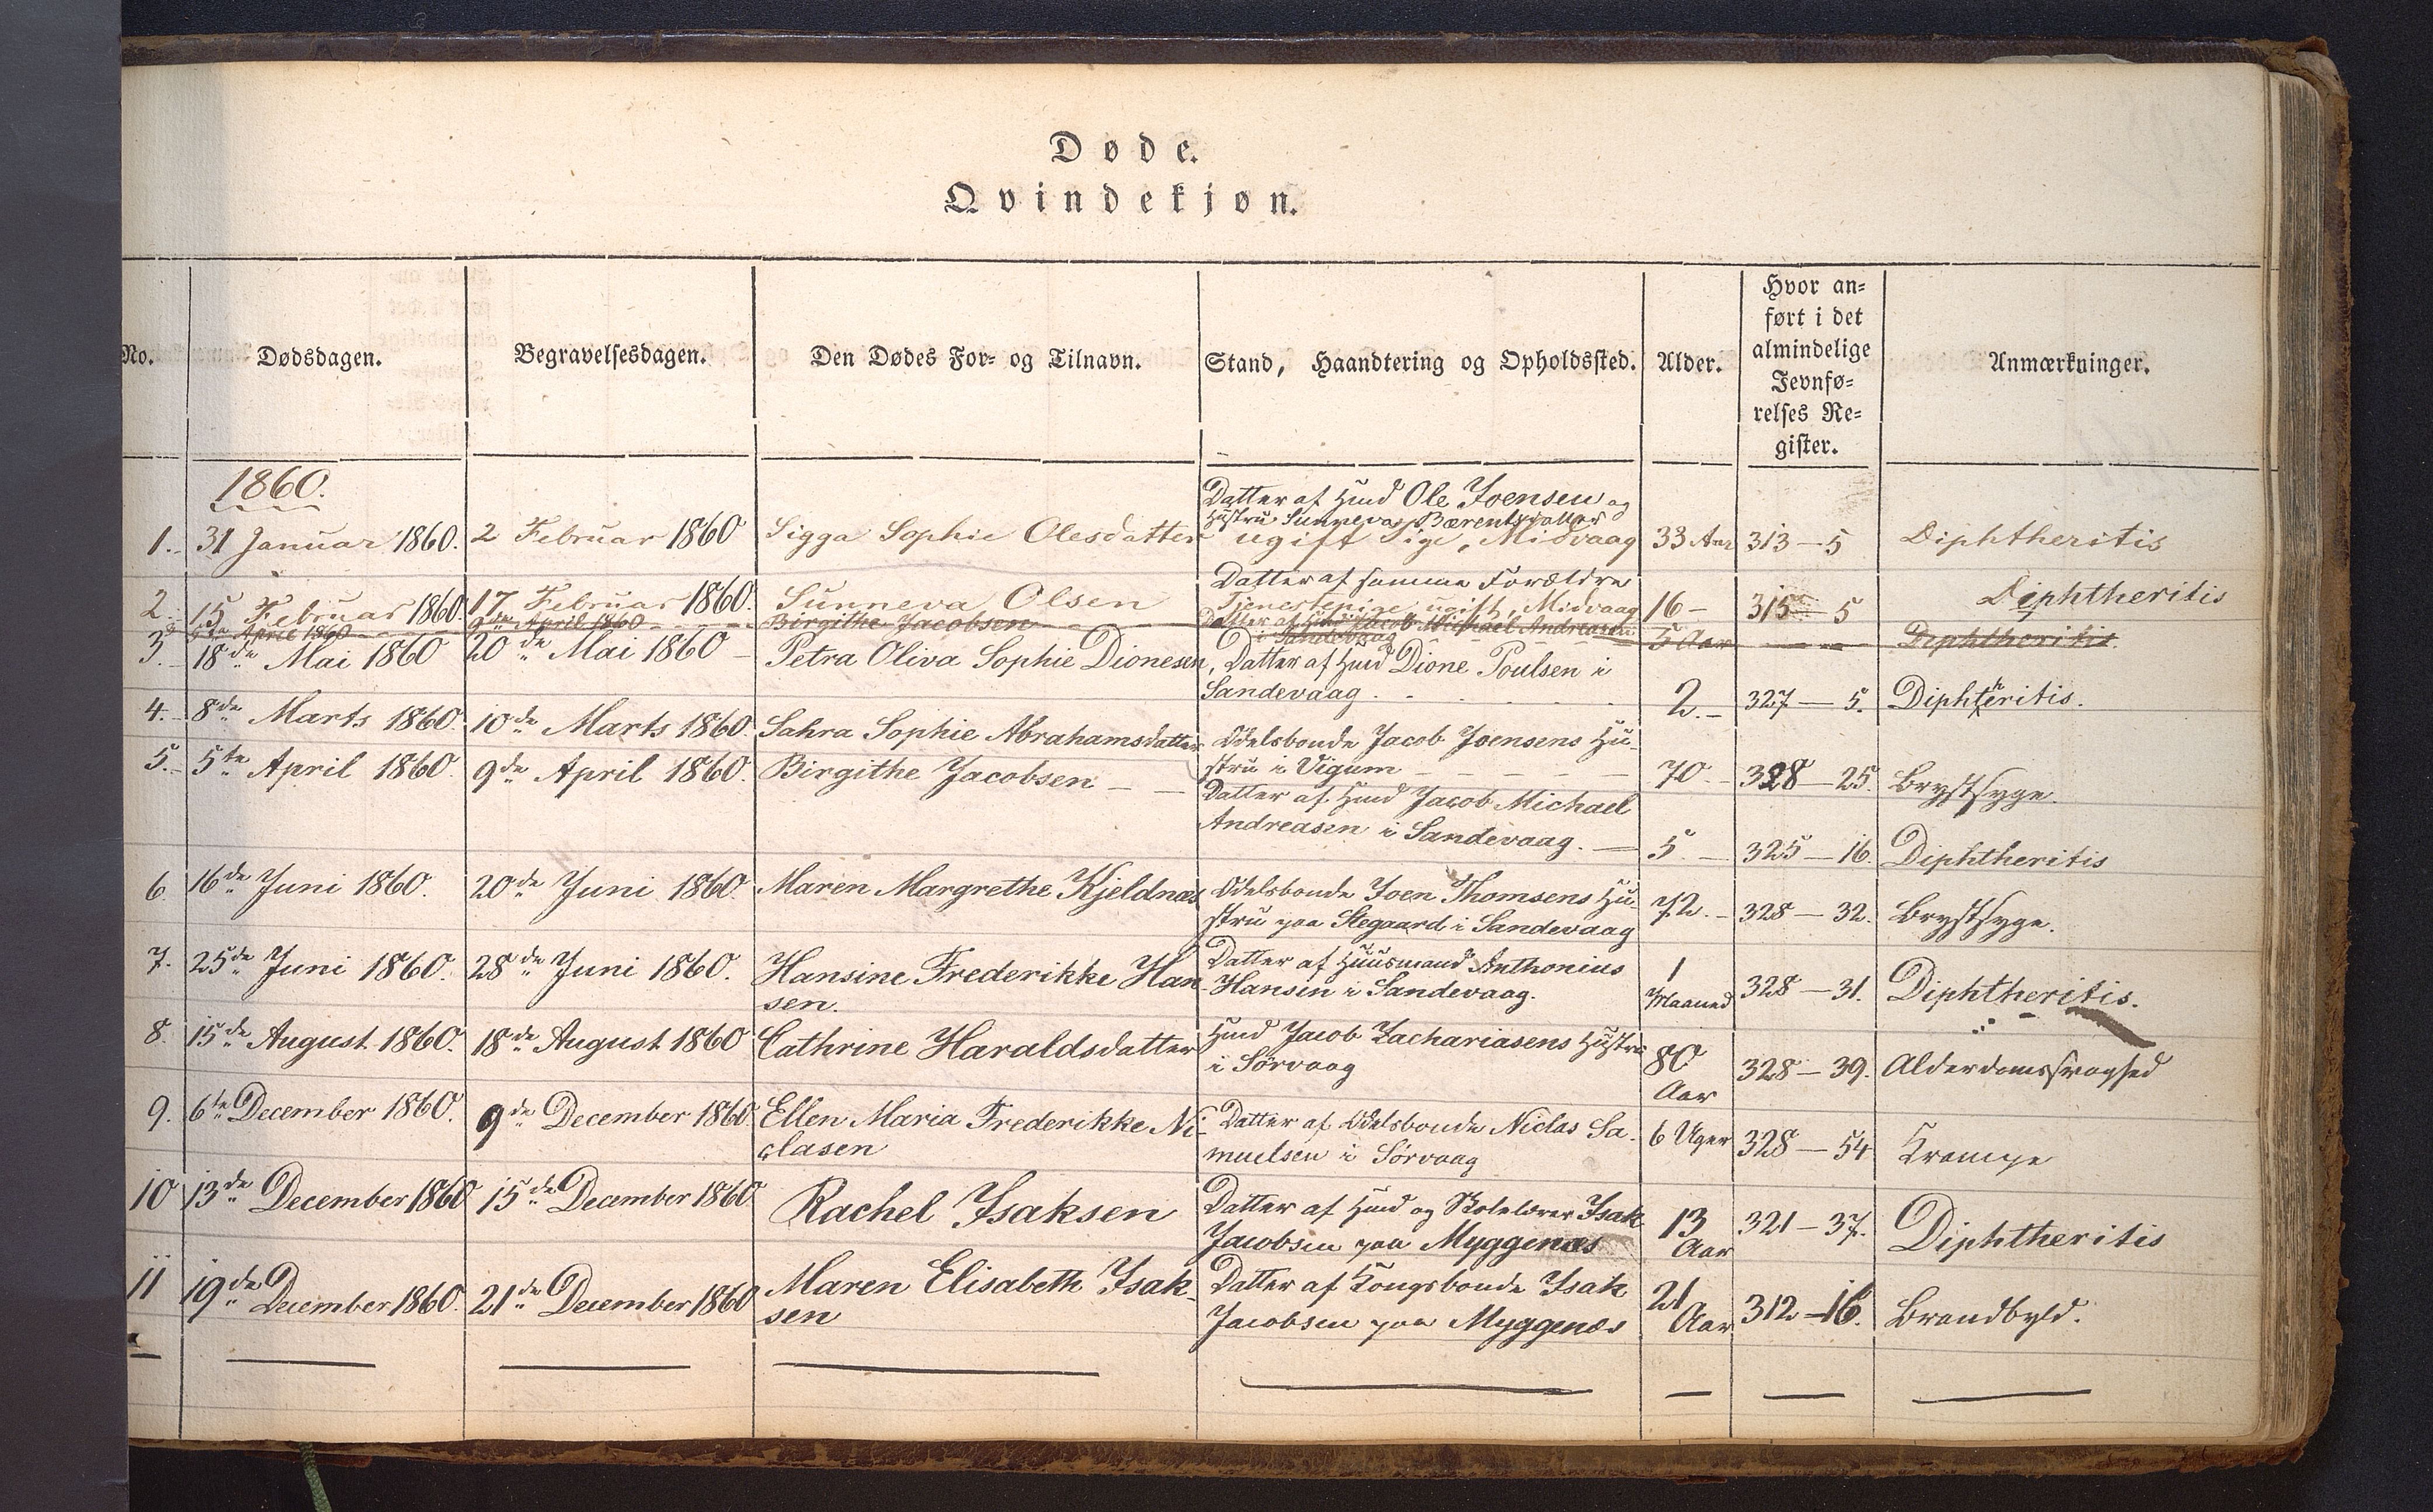 Døde.
Qvindekjøn.
No.
Dødsdagen.
Begravelsesdagen.
Den Dødes For- og Tilnavn.
Stand, Haandtering og Opholdssted.
Alder.
Hvor an-
ført i det
almindelige
Jevnfø-
relses Re-
gister.
Anmærkninger.
1860.
1. 31 Januar 1860. 2 Februar 1860 Sigga Sophie Olesdatter
Datter af Hmd Ole Joensen og
Hustru Sunneva Bærentsdatter
ugift Pige, Midvaag 33 Aar 313-5 Diphtheritis
2. 15 Februar 1860 17 Februar 1860. Sunneva Olsen
Datter af samme Forældre
Tjenestepige, ugift, Midvaag 16- 315-5 Diphtheritis
5te April 1860 9de April 1860 Birgithe Jacobsen
Datter af Hmd Jacob Michael Andreasen
i Sandevaag 5 Aar Diphtheritis
3. 18de Mai 1860 20de Mai 1860 - Petra Oliva Sophie Dionesen,
Datter af Hmd Dione Poulsen i
Sandevaag. 2.- 327-5. Diphtheritis.
4. 8de Marts 1860. 10de Marts 1860. Sahra Sophie Abrahamsdatter
Odelsbonde Jacob Joensens Hu-
stru i Vigum 70.- 328-25. Brystsyge.
5. 5te April 1860. 9de April 1860. Birgithe Jacobsen
Datter af Hmd Jacob Michael
Andreasen i Sandevaag. 5.- 325-16. Diphtheritis
6. 16de Juni 1860. 20de Juni 1860. Maren Margrethe Kjeldnæs
Odelsbonde Joen Thomsens Hu-
stru paa Stegaard i Sandevaag 72.- 328-32. Brystsyge.
7. 25de Juni 1860. 28de Juni 1860. Hansine Frederikke Han-
sen.
Datter af Huusmand Anthonius
Hansen i Sandevaag. 1
Maaned 328-31. Diphtheritis.
8. 15de August 1860. 18de August 1860 Cathrine Haraldsdatter
Hmd Jacob Zachariasens Hustru
i Sörvaag 80
Aar 328-39. Alderdomssvaghed
9. 6te December 1860. 9de December 1860 Ellen Maria Frederikke Ni-
clasen
Datter af Odelsbonde Niclas Sa-
muelsen i Sörvaag 6 Uger 328-54 Krampe
10 13de December 1860 15de December 1860. Rachel Isaksen
Datter af Hmd og Skolelærer Isak
Jacobsen paa Myggenæs 13
Aar 321-37. Diphtheritis
11 19de December 1860. 21de December 1860 Maren Elisabeth Isak-
sen
Datter af Kongsbonde Isak
Jacobsen paa Myggenæs 21
Aar 312-16. Brandbyld.